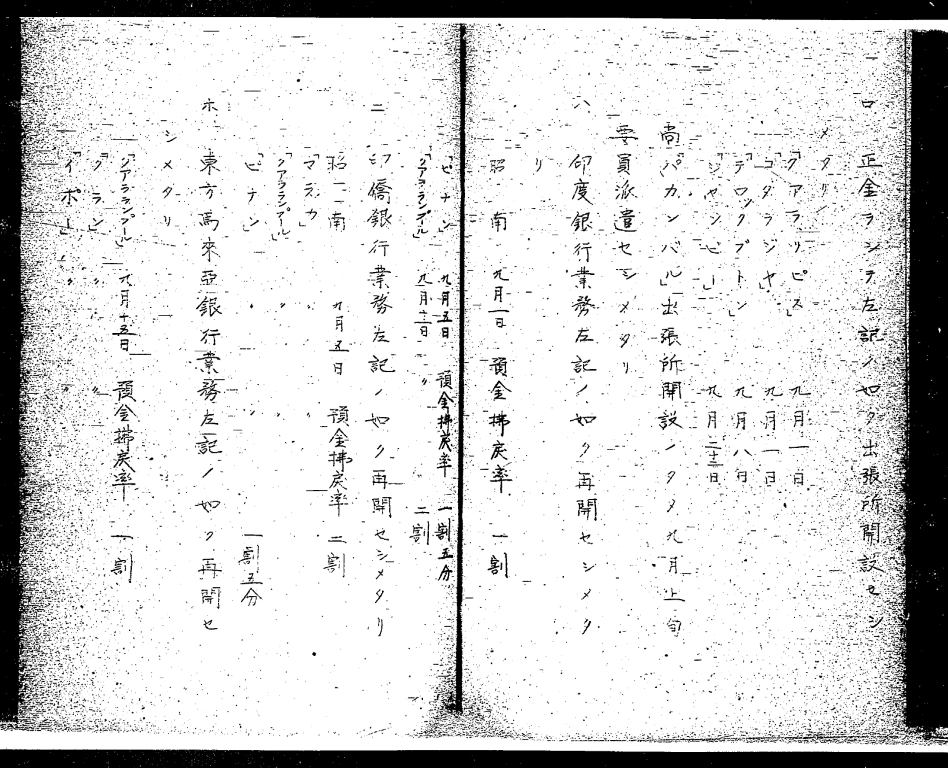 ロ 正金ヲシテ左記ノ如ク出張所開設セシ
メタリ
「クアラリピス」 九月一日
「コタラジヤ」 九月一日
「テロックブトン」 九月八日
「ジャンビー」 九月二十三日
尚「パカンバル」出張所開設ノタメ九月上旬
要員派遣セシメタリ
ハ、印度銀行業務左記ノ如ク再開セシメタ
リ
昭南 九月一日 預金拂戻率 一割
「ピナン」 九月五日 預金拂戻率 一割五分
「クアラランプール」 〃 二割
ニ 印僑銀行業務左記ノ如ク再開セシメタリ
昭南 九月五日 預金拂戻率 二割
「マラカ」 〃 〃
「クアラランプール」 〃 〃
「ピナン」 〃 〃 一割五分
ホ、東方馬來亞銀行業務左記ノ如ク再開セ
シメタリ
「クアラランプール」 九月十五日 預金拂戻率 一割
「クラン」 〃 〃
「イポー」 〃 〃